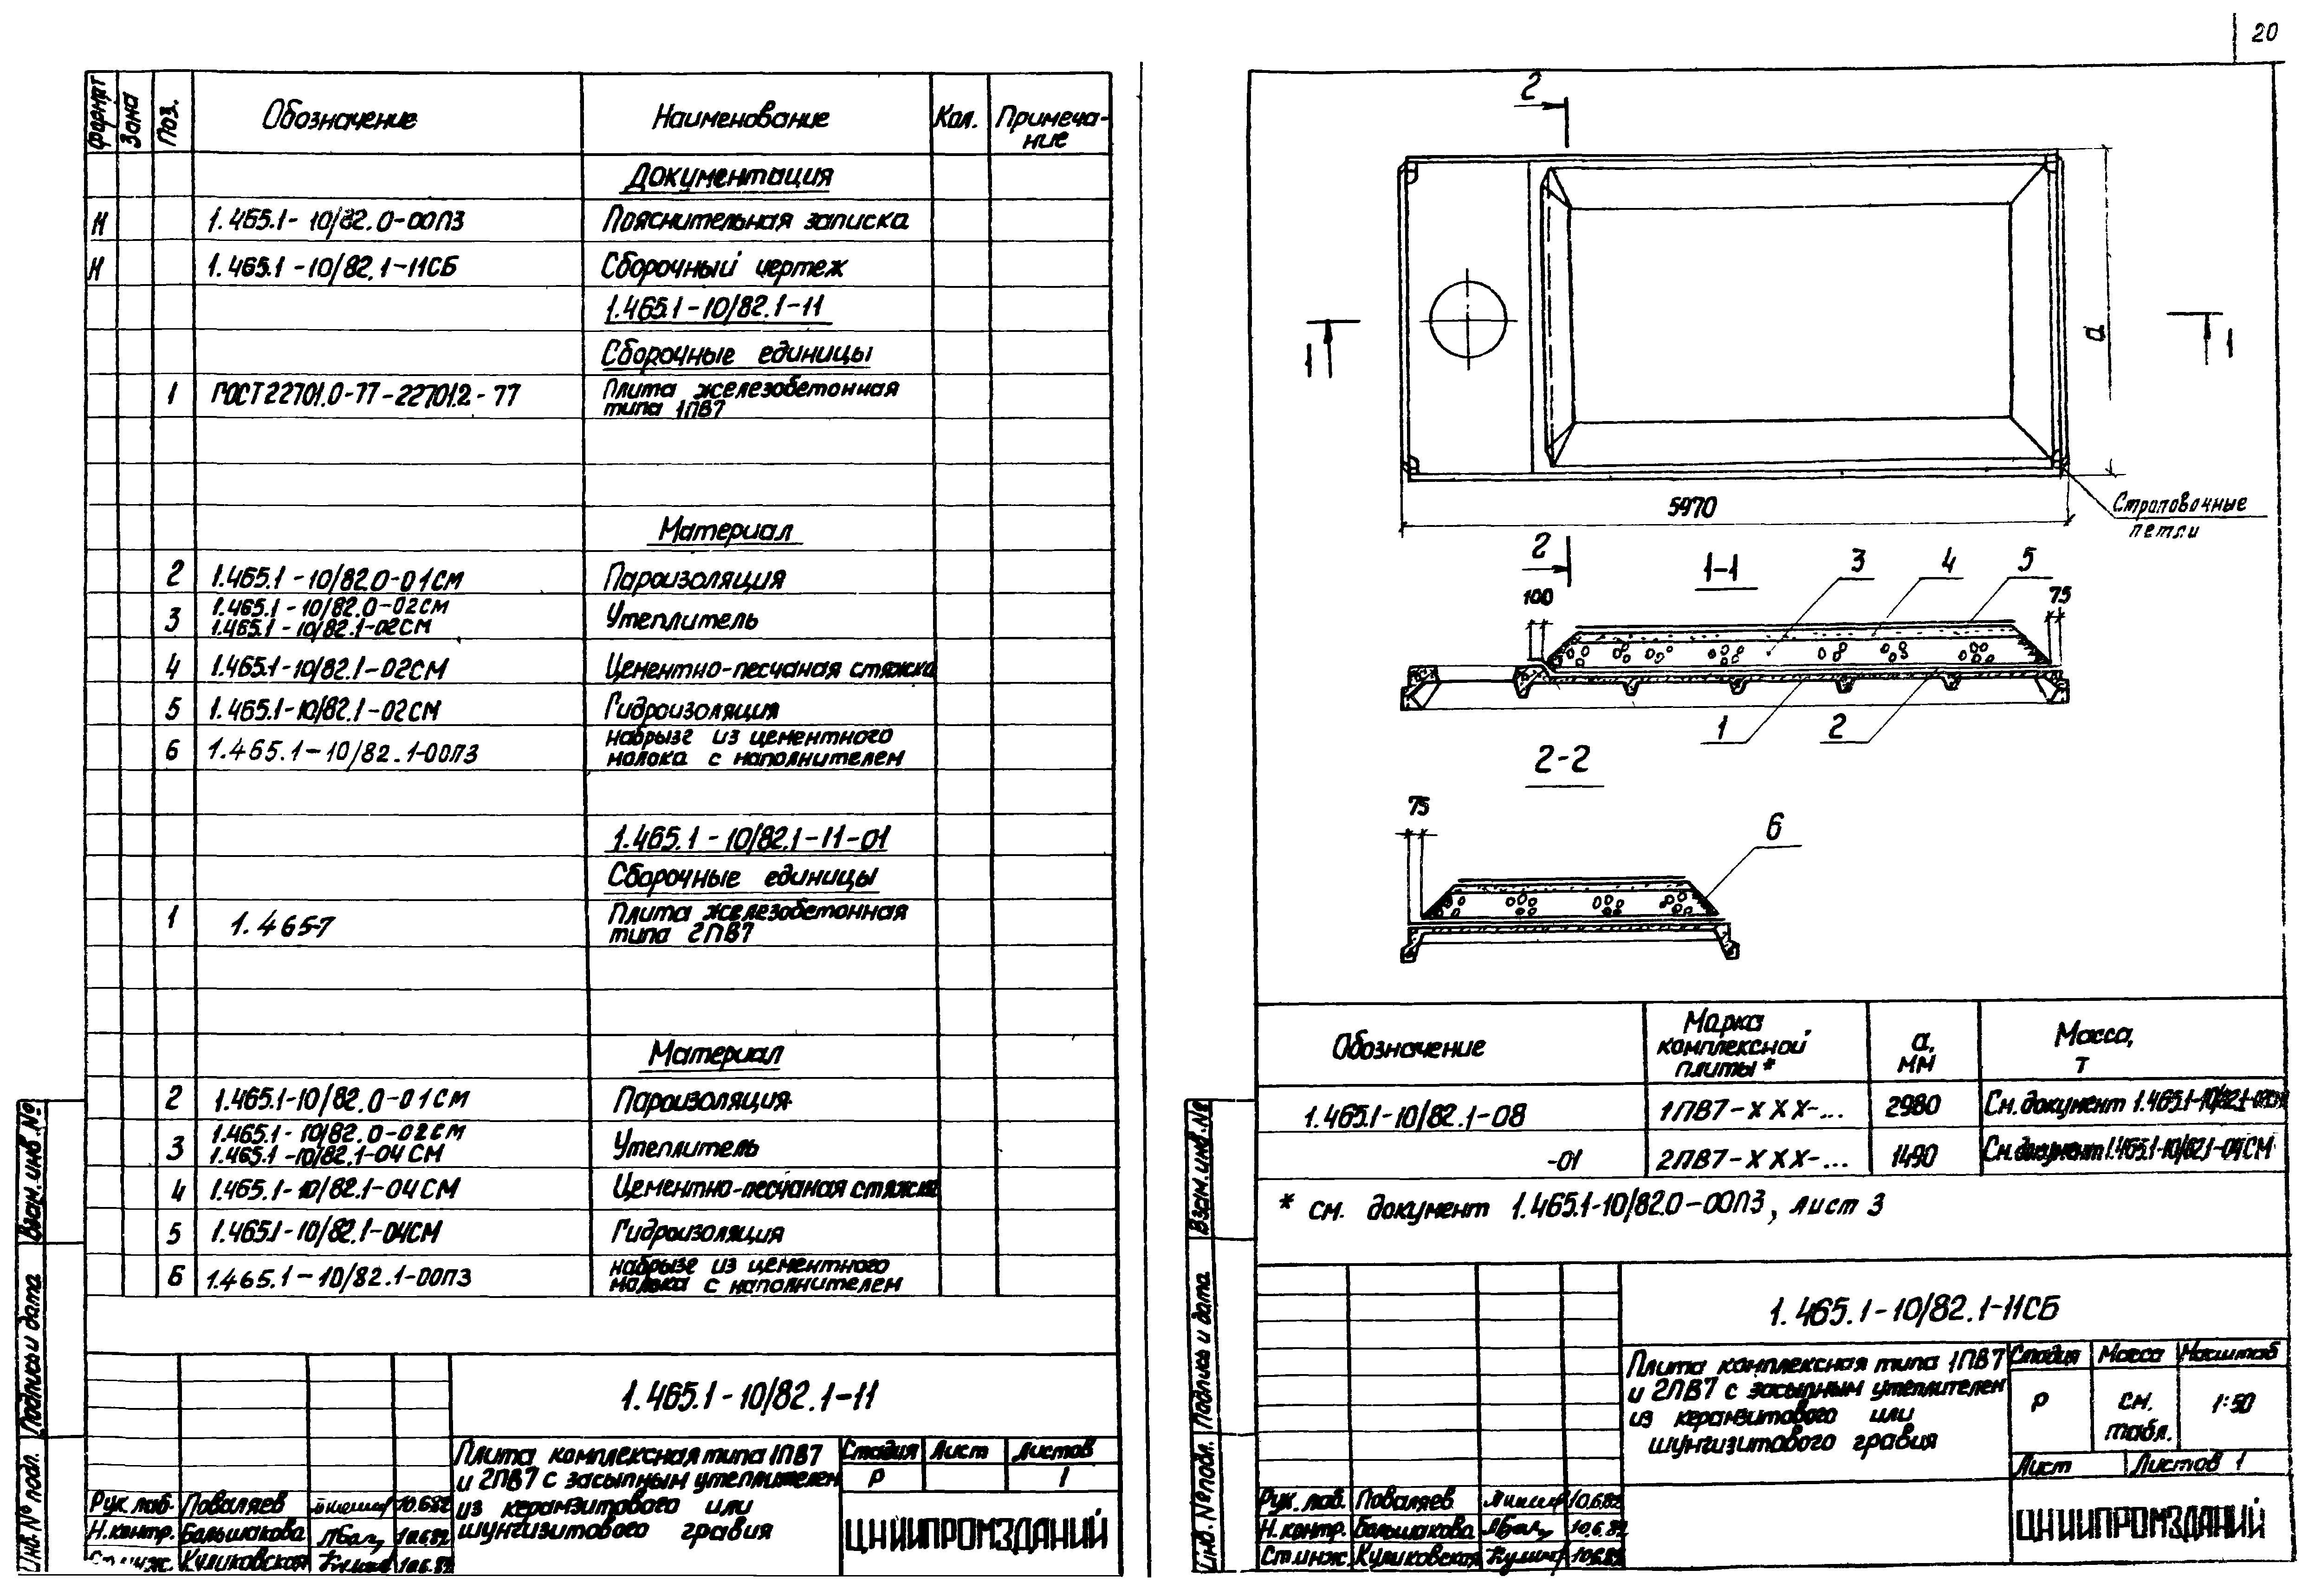 20
Формат
Зона
Поз.
Обозначение
Наименование
Кол.
Примеча-
ние
Документация
И 1.465.1-10/82.0-00ПЗ Пояснительная записка
И 1.465.1-10/82.1-11СБ Сборочный чертеж
1.465.1-10/82.1-11
Сборочные единицы
1 ГОСТ 22701.0-77-22701.2-77 Плита железобетонная
типа 1ПВ7
Материал
2 1.465.1-10/82.0-01СМ Пароизоляция
3 1.465.1-10/82.0-02СМ Утеплитель
1.465.1-10/82.1-02СМ
4 1.465.1-10/82.1-02СМ Цементно-песчаная стяжка
5 1.465.1-10/82.1-02СМ Гидроизоляция
6 1.465.1-10/82.1-00ПЗ набрызг из цементного
молока с наполнителем
1.465.1-10/82.1-11-01
Сборочные единицы
1 1.465-7 Плита железобетонная
типа 2ПВ7
Материал
2 1.465.1-10/82.0-01СМ Пароизоляция
3 1.465.1-10/82.0-02СМ Утеплитель
1.465.1-10/82.1-04СМ
4 1.465.1-10/82.1-04СМ Цементно-песчаная стяжка
5 1.465.1-10/82.1-04СМ Гидроизоляция
6 1.465.1-10/82.1-00ПЗ набрызг из цементного
молока с наполнителем
Взам. инв. №
Подпись и дата
Инв. № подл.
1.465.1-10/82.1-11
Плита комплексная типа 1ПВ7
и 2ПВ7 с засыпным утеплителем
из керамзитового или
шунгизитового гравия
Стадия Лист Листов
Р 1
ЦНИИПРОМЗДАНИЙ
Рук. лаб. Поваляев 10.6.82
Н. контр. Большакова 10.6.82
Ст. инж. Куликовская 10.6.82
2
1 1
а
5970
Строповочные
петли
2
1-1
3 4 5
100 75
1 2
2-2
75
6
Обозначение
Марка
комплексной
плиты*
а,
мм
Масса,
т
1.465.1-10/82.1-08 1ПВ7-ХХХ-... 2980 См. документ 1.465.1-10/82.1-02СМ
-01 2ПВ7-ХХХ-... 1490 См. документ 1.465.1-10/82.1-04СМ
* см. документ 1.465.1-10/82.0-00ПЗ, лист 3
Взам. инв. №
Подпись и дата
Инв. № подл.
1.465.1-10/82.1-11СБ
Плита комплексная типа 1ПВ7
и 2ПВ7 с засыпным утеплителем
из керамзитового или
шунгизитового гравия
Стадия Масса Масштаб
Р см.
табл. 1:50
Лист Листов 1
ЦНИИПРОМЗДАНИЙ
Рук. лаб. Поваляев 10.6.82
Н. контр. Большакова 10.6.82
Ст. инж. Куликовская 10.6.82